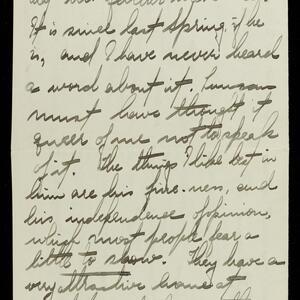 It is since last spring, if he
is, and I have never heard
a word about it. Susan
must have thought it
queer of me not to speak
of it. The things I like best in
him are his fine-ness, and
his independence of opinion,
which most people fear a
little to show. They have a
very attractive home at